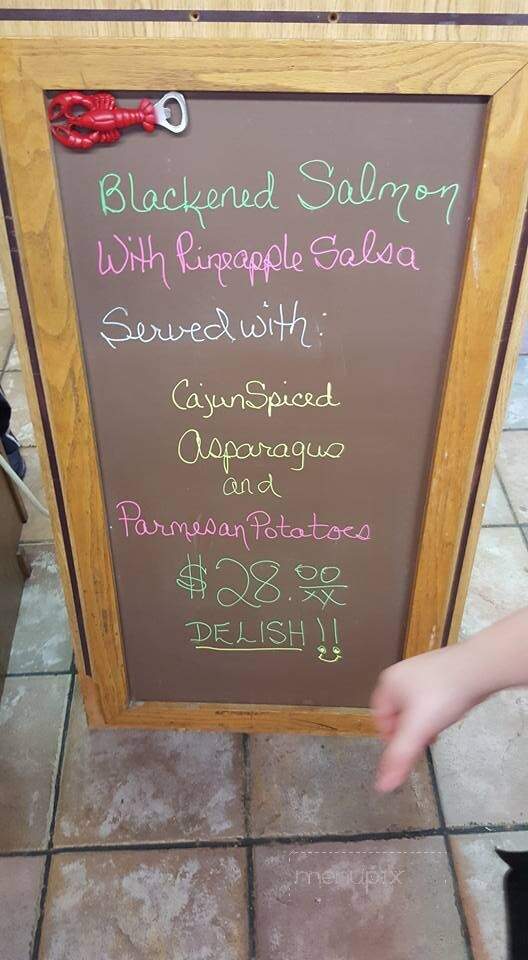 Blackened Salmon
With Pineapple Salsa
Served with:
Cajun Spiced
Asparagus
and
Parmesan Potatoes
$28.00/xx
DELISH!!
menupix